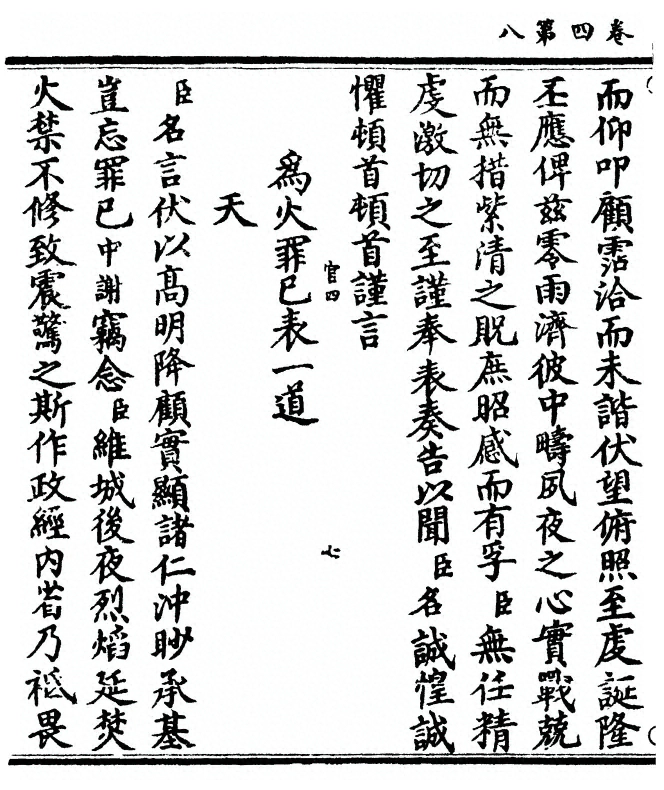 卷四第八
而仰叩顧霑洽而未諧伏望俯照至虔誕隆
丕應俾兹零雨濟彼中疇夙夜之心實戰兢
而無措紫清之貺庶昭感而有孚臣無任精
虔激切之至謹奉表奏告以聞臣名誠惶誠
懼頓首頓首謹言
官四
七
爲火罪已表一道
天
臣名言伏以高明降顧實顯諸仁沖眇承基
豈忘罪已中謝竊念臣維城後夜烈熖延焚
火禁不修致震驚之斯作政經内省乃祗畏